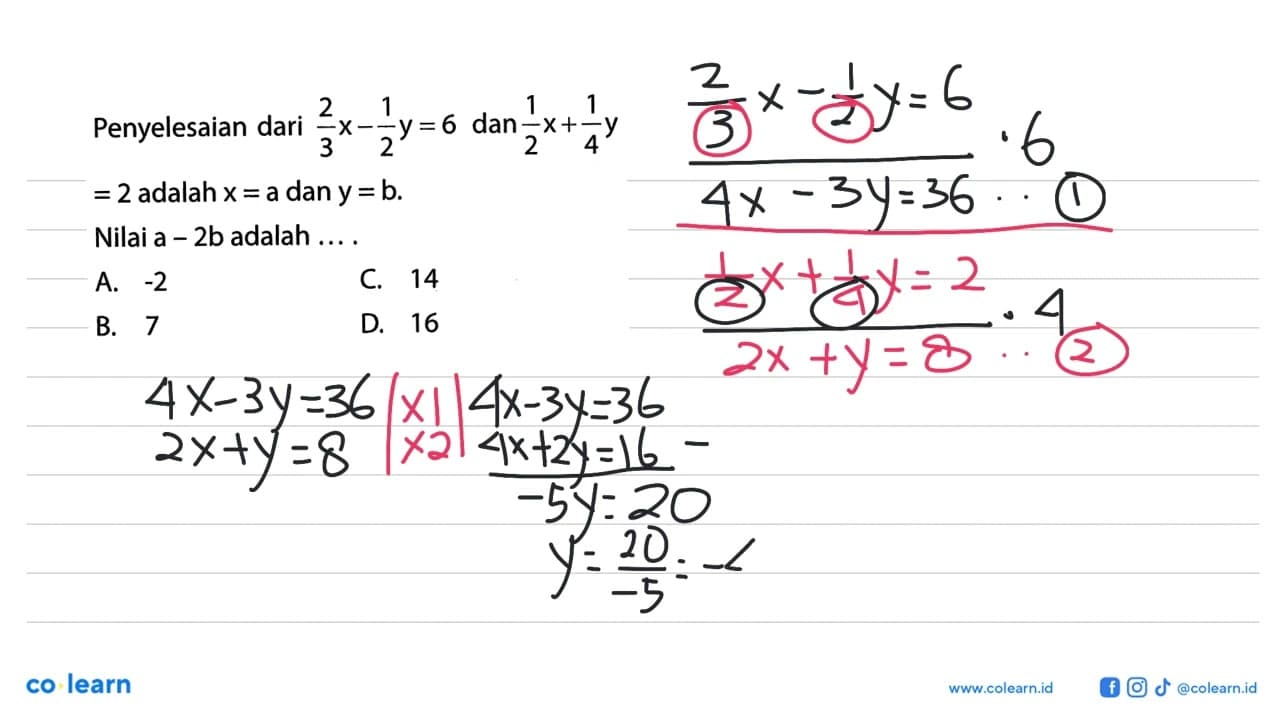 Penyelesaian dari 2/3 x - 1/2 y = 6 dan 1/2 x + 1/4 y
= 2 adalah x = a dan y = b.
Nilai a – 2b adalah ... .
A. -2
B. 7
C. 14
D. 16
2/3 x - 1/2 y = 6
· 6
4x - 3y = 36 .. 1
1/2 x + 1/4 y = 2
· 4
2x + y = 8 .. 2
4x - 3y = 36 | x1 | 4x - 3y = 36
2x + y = 8 | x2 | 4x + 2y = 16 -
-5y = 20
y = 20/-5 =
co learn
www.colearn.id
@colearn.id